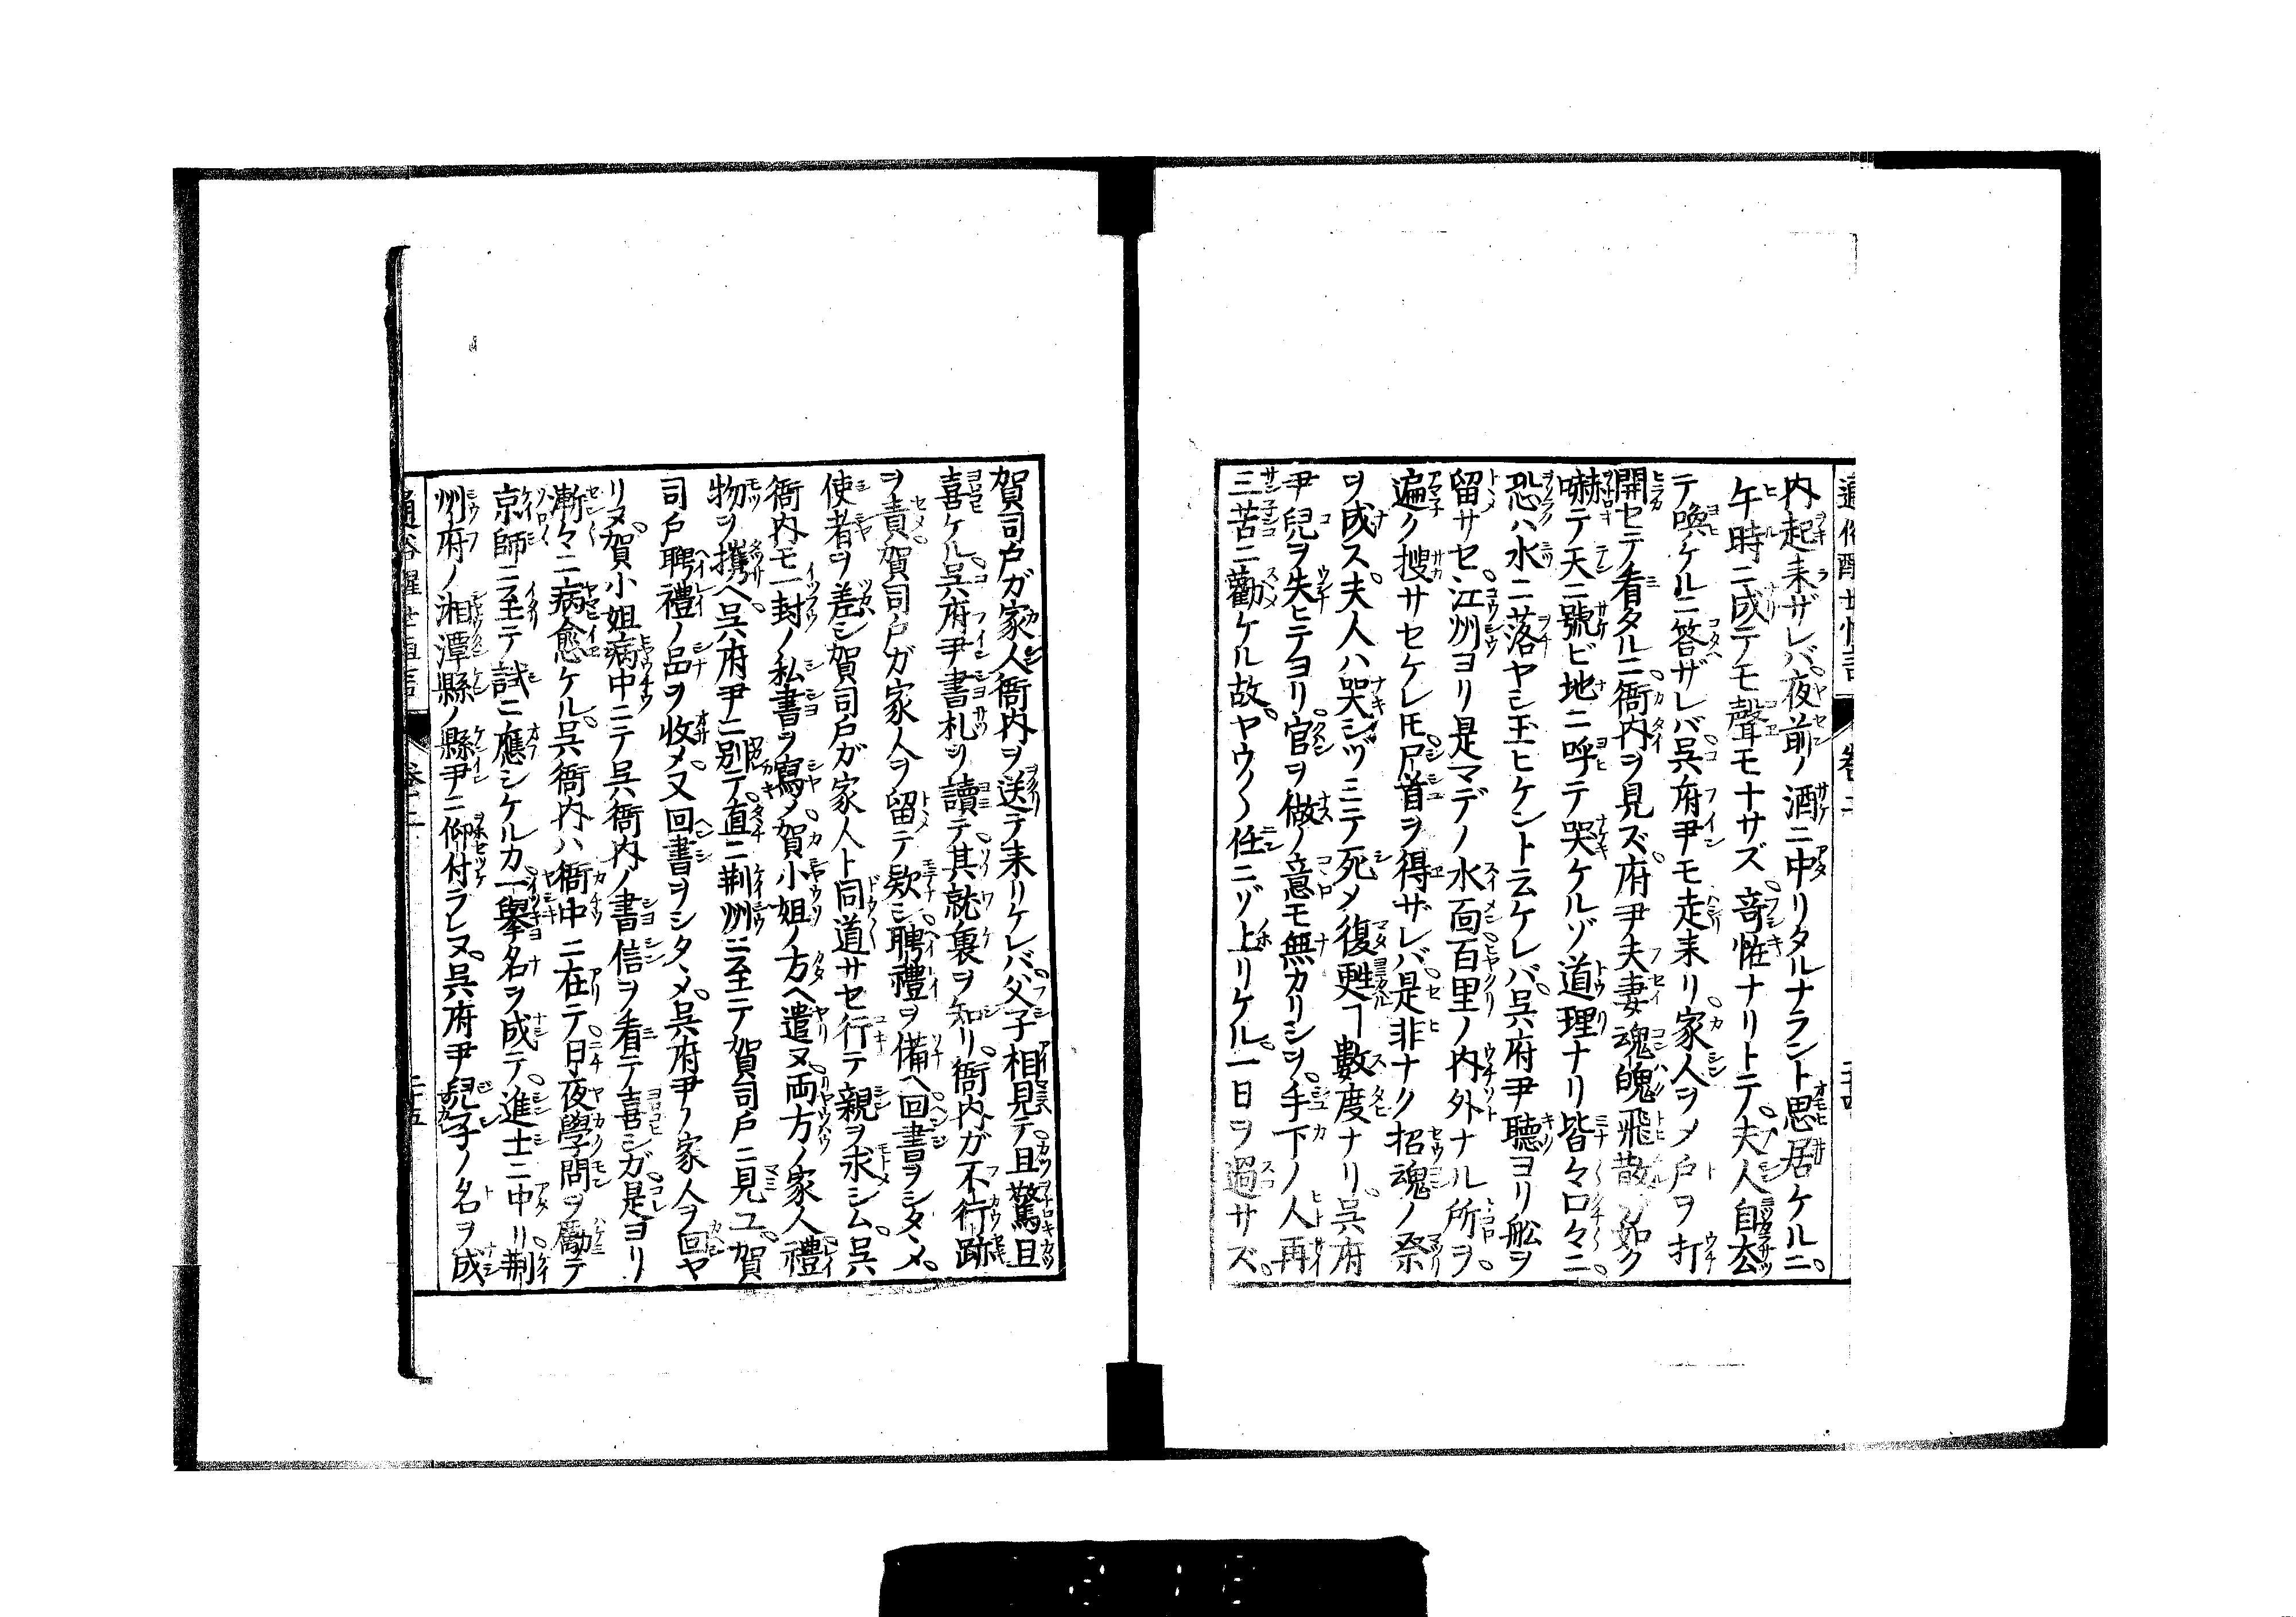 内起来ザレバ。夜前ノ酒ニ中リタルナラント思居ケルニ。
午時ニ成テモ聲モナサズ。奇恠ナリトテ。夫人自去
テ喚ケルニ答ザレバ。呉府尹モ走来リ。家人ヲメ戸ヲ打
開セテ看タルニ。衙内ヲ見ズ。府尹夫妻魂魄飛散ノ如ク
嚇テ天ニ號ビ地ニ呼テ哭ケルゾ道理ナリ皆々口々ニ。
恐ハ水ニ落ヤシ玉ヒケント云ケレバ。呉府尹聽ヨリ舩ヲ
留サセ。江州ヨリ是マデノ水面百里ノ内外ナル所ヲ。
遍ク搜サセケレ𪜈尸首ヲ得ザレバ是非ナク招魂ノ祭
ヲ成ス。夫人ハ哭シヅミテ死メ復甦ヿ數度ナリ。呉府
尹兒ヲ失ヒテヨリ。官ヲ做ノ意モ無カリシヲ。手下ノ人再
三苦ニ勸ケル故。ヤウ〳〵任ニゾ上リケル。一日ヲ過サズ。
賀司戸ガ家人衙内ヲ送テ来リケレバ。父子相見テ。且驚且
喜ケル。呉府尹書札ヲ讀テ。其就裏ヲ知リ。衙内ガ不行跡
ヲ責。賀司戸ガ家人ヲ留テ欵シ。聘禮ヲ備ヘ回書ヲシタヽメ。
使者ヲ差シ賀司戸ガ家人ト同道サセ行テ親ヲ求シム。呉
衙内モ一封ノ私書ヲ寫メ。賀小姐ノ方ヘ遣ヌ。両方ノ家人。禮
物ヲ攜ヘ。呉府尹ニ別テ。直ニ荊州ニ至テ賀司戸ニ見ユ。賀
司戸聘禮ノ品ヲ收メ。又回書ヲシタヽメ。呉府尹ノ家人ヲ回ヤ
リヌ。賀小姐病中ニテ呉衙内ノ書信ヲ看テ喜シガ。是ヨリ
漸々ニ病愈ケル。呉衙内ハ衙中ニ在テ。日夜學問ヲ勵テ
京師ニ至テ試ニ應シケルカ。一擧名ヲ成テ。進士ニ中リ。荊
州府ノ湘潭縣ノ縣尹ニ仰付ラレヌ。呉府尹兒子ノ名ヲ成